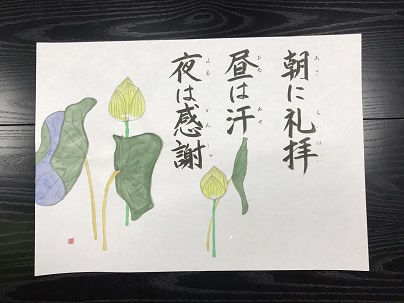 朝に礼拝
昼は汗
夜は感謝